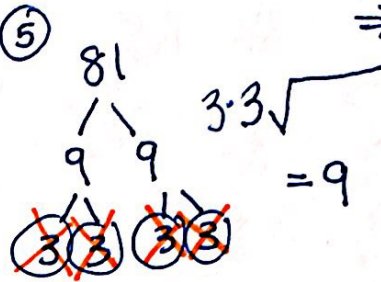 5
81
9 9
3 3 3 3
⇒
3·3√
= 9